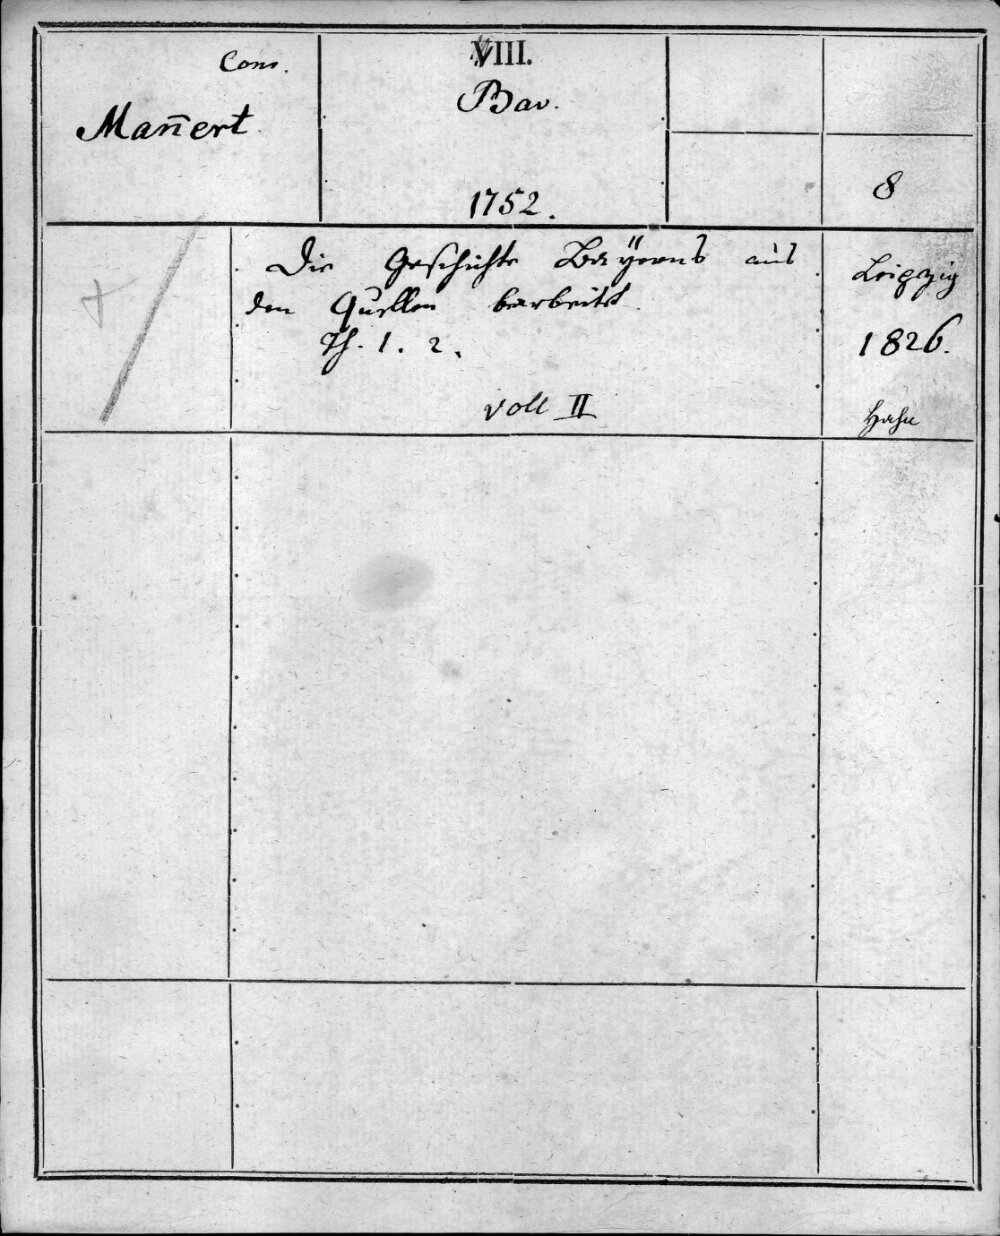 Conr.
Man̄ert
VIII.
Bav.
1752.
8
Die Geschichte Bayerns aus
den Quellen bearbeitet
Th. 1. 2.
voll II
Leipzig
1826.
Hahn